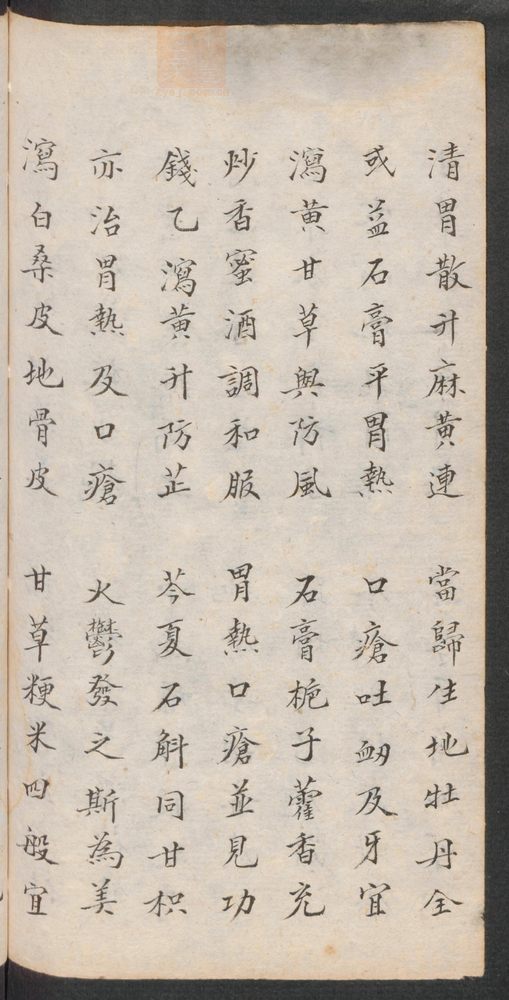 清胃散升麻黄連 當歸生地牡丹全
或益石膏平胃熱 口瘡吐衂及牙宜
瀉黄甘草與防風 石膏栀子藿香充
炒香蜜酒調和服 胃熱口瘡並見功
錢乙瀉黄升防芷 芩夏石斛同甘枳
亦治胃熱及口瘡 火鬱發之斯為美
瀉白桑皮地骨皮 甘草粳米四般宜